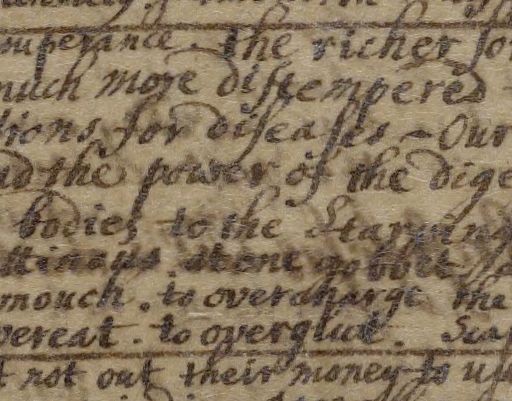 mperance. the richer sor
much more distempered
tions for diseases - Our
nd the power of the dige
bodies to the Starving
at one gobbet
mouch. to overcharge the
vereat. to overglut. Sca
t not out their money to